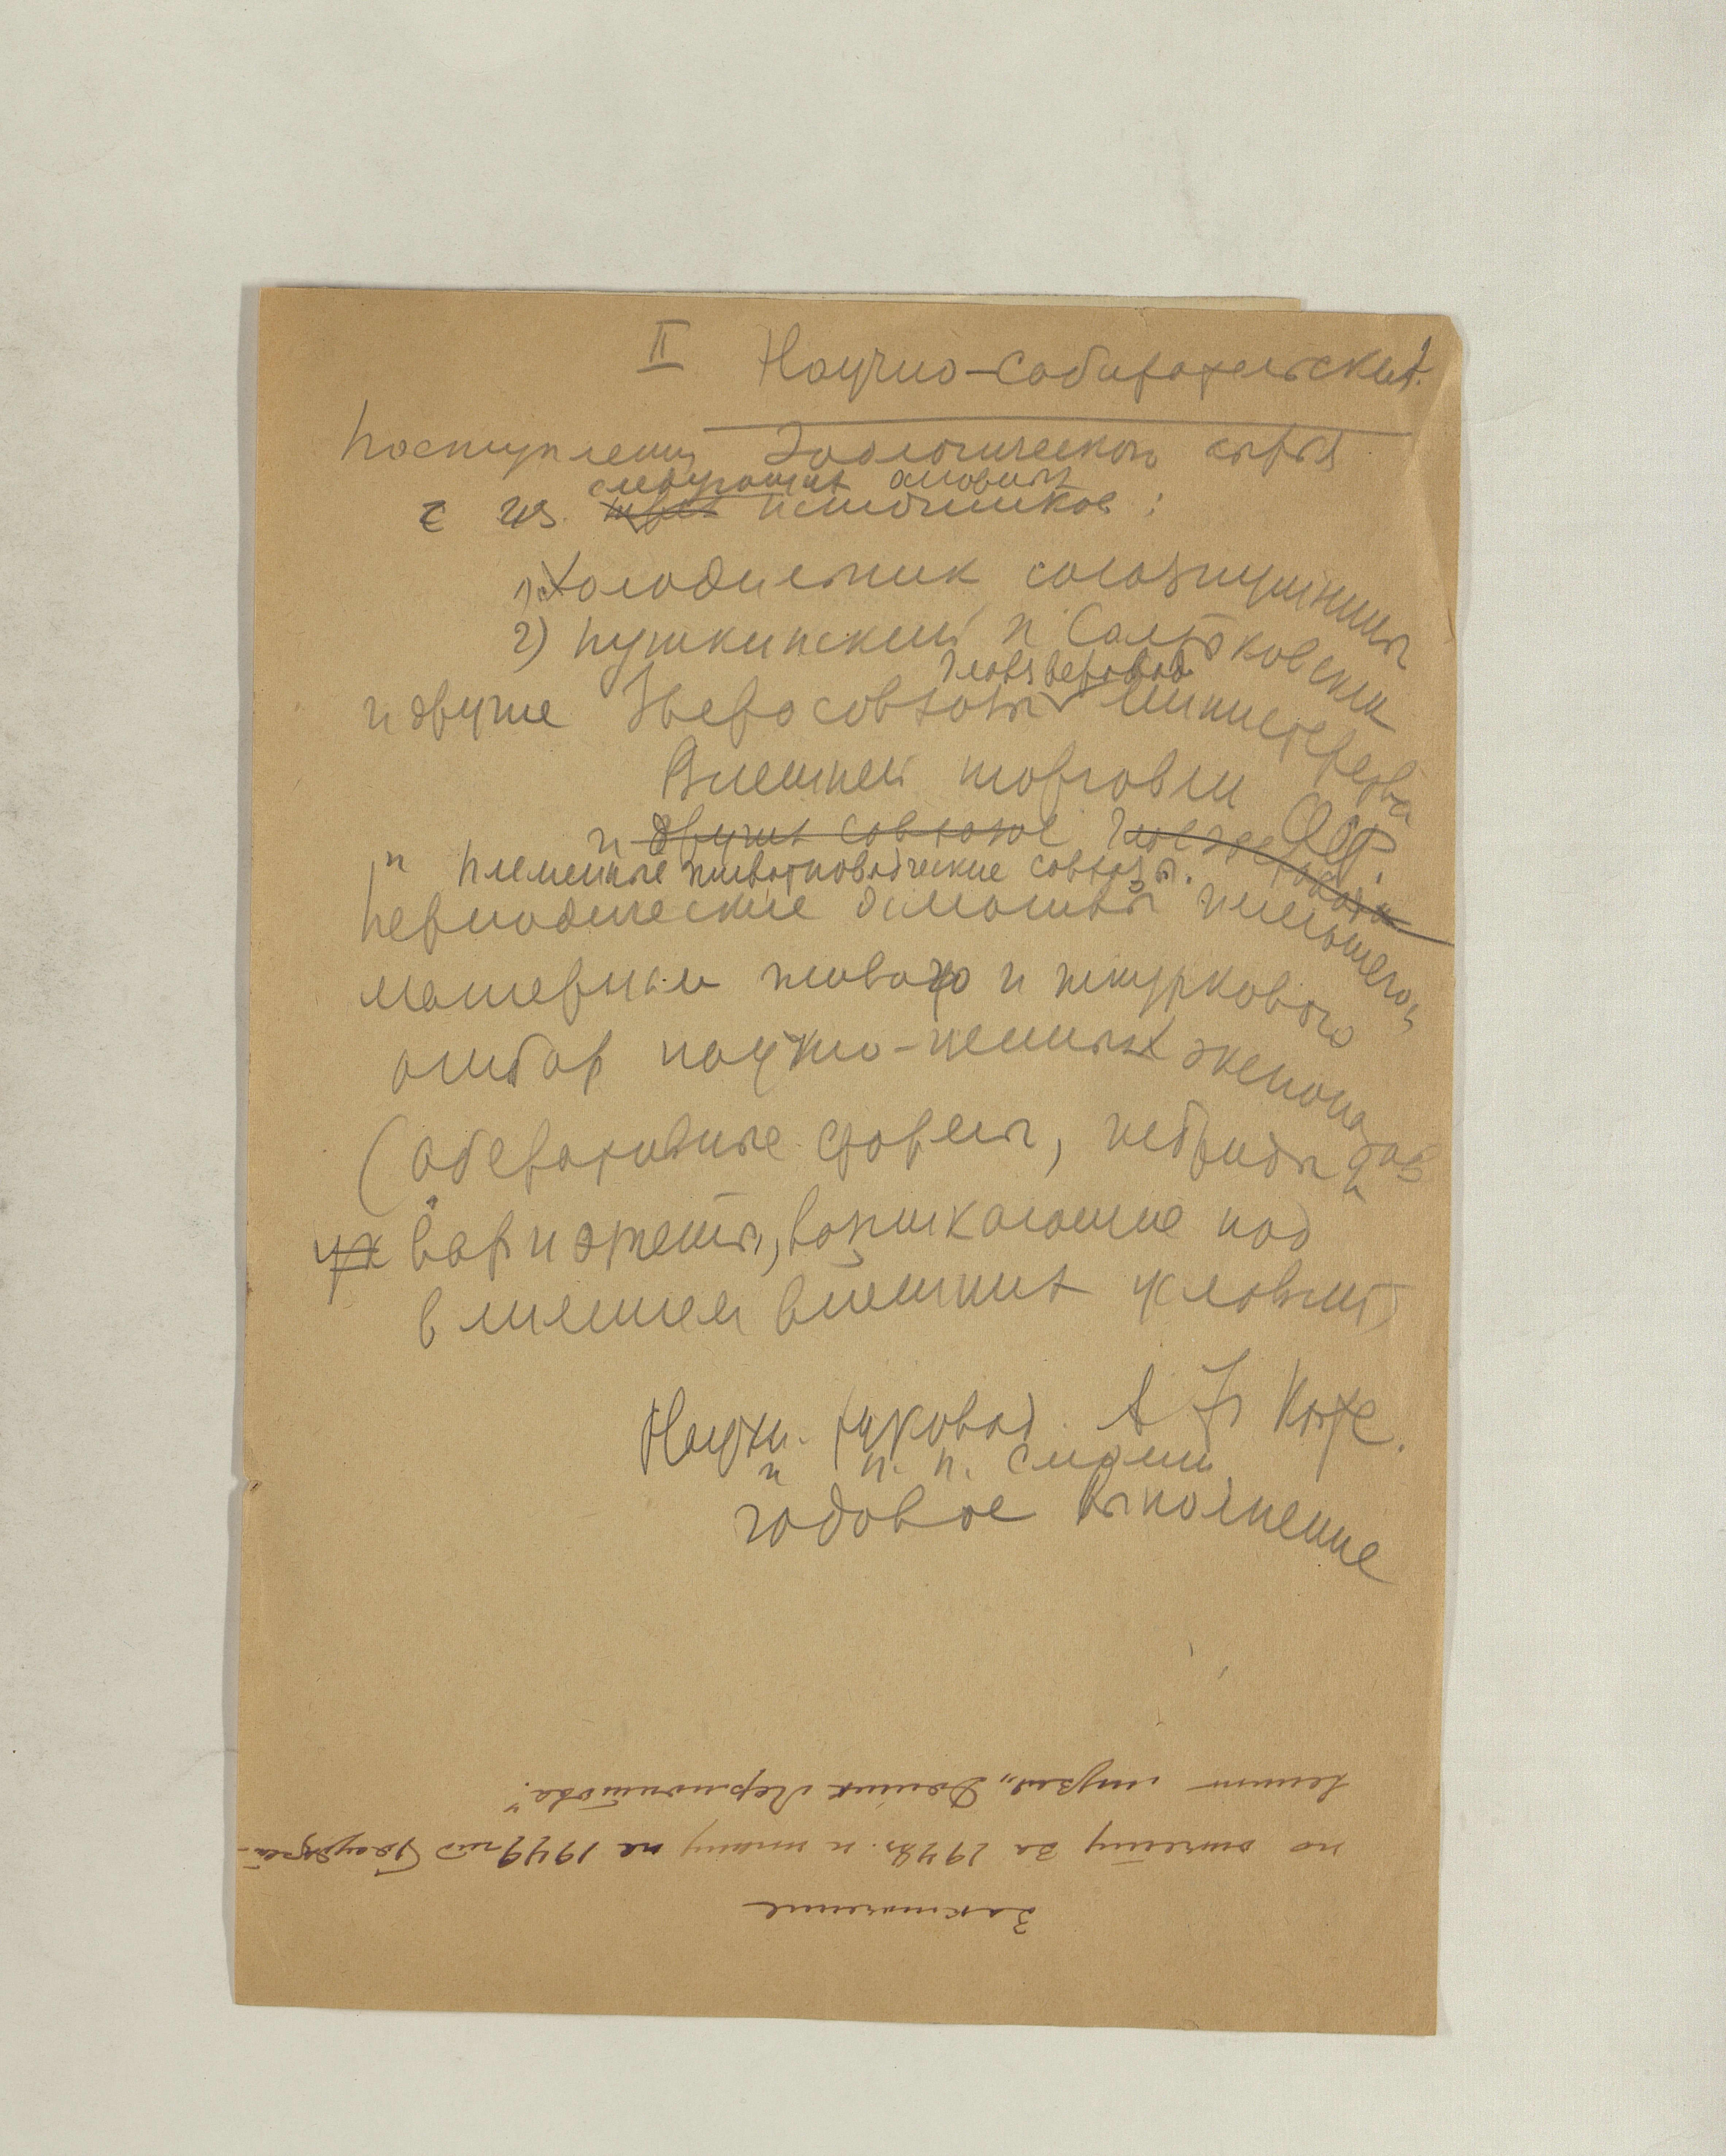 II Научно-собирательский.
Поступлений зоологического сырья
из следующих основных источников:
1) Холодильник союзпушнины
2) Пушкинский и Салтыковский
и другие Зверосовхозы Главзверовод Министерства
Внешней торговли
и других совхозов
и племенные животноводческие совхозы.
Периодические осмотры имеющегося
материала живого и шкуркового
отбор научно-ценных экспонатов
(аберативные формы, гибриды и
вариэтеты, возникающие под
влиянием внешних условий)
Научн. руковод. А Ф Котс.
и п. п. смотри
годовое выполнение
Заключение
по отчету за 1948г. и плану на 1949 год Государ-
венного музея „Домик Лермонтова".